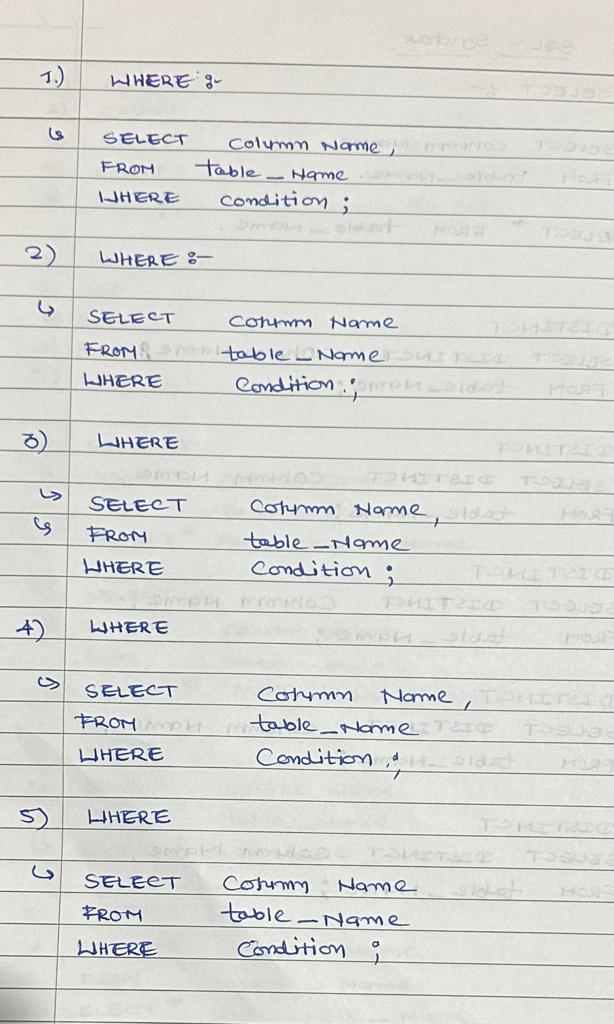 1.) WHERE :-
↳ SELECT Column Name,
FROM table_Name
WHERE condition ;
2) WHERE :-
↳ SELECT Column Name
FROM table_Name
WHERE Condition ;
3) WHERE
↳ SELECT Column Name,
↳ FROM table_Name
WHERE Condition ;
4) WHERE
↳ SELECT Column Name,
FROM table_Name
WHERE Condition ;
5) WHERE
↳ SELECT Column Name
FROM table_Name
WHERE Condition ;